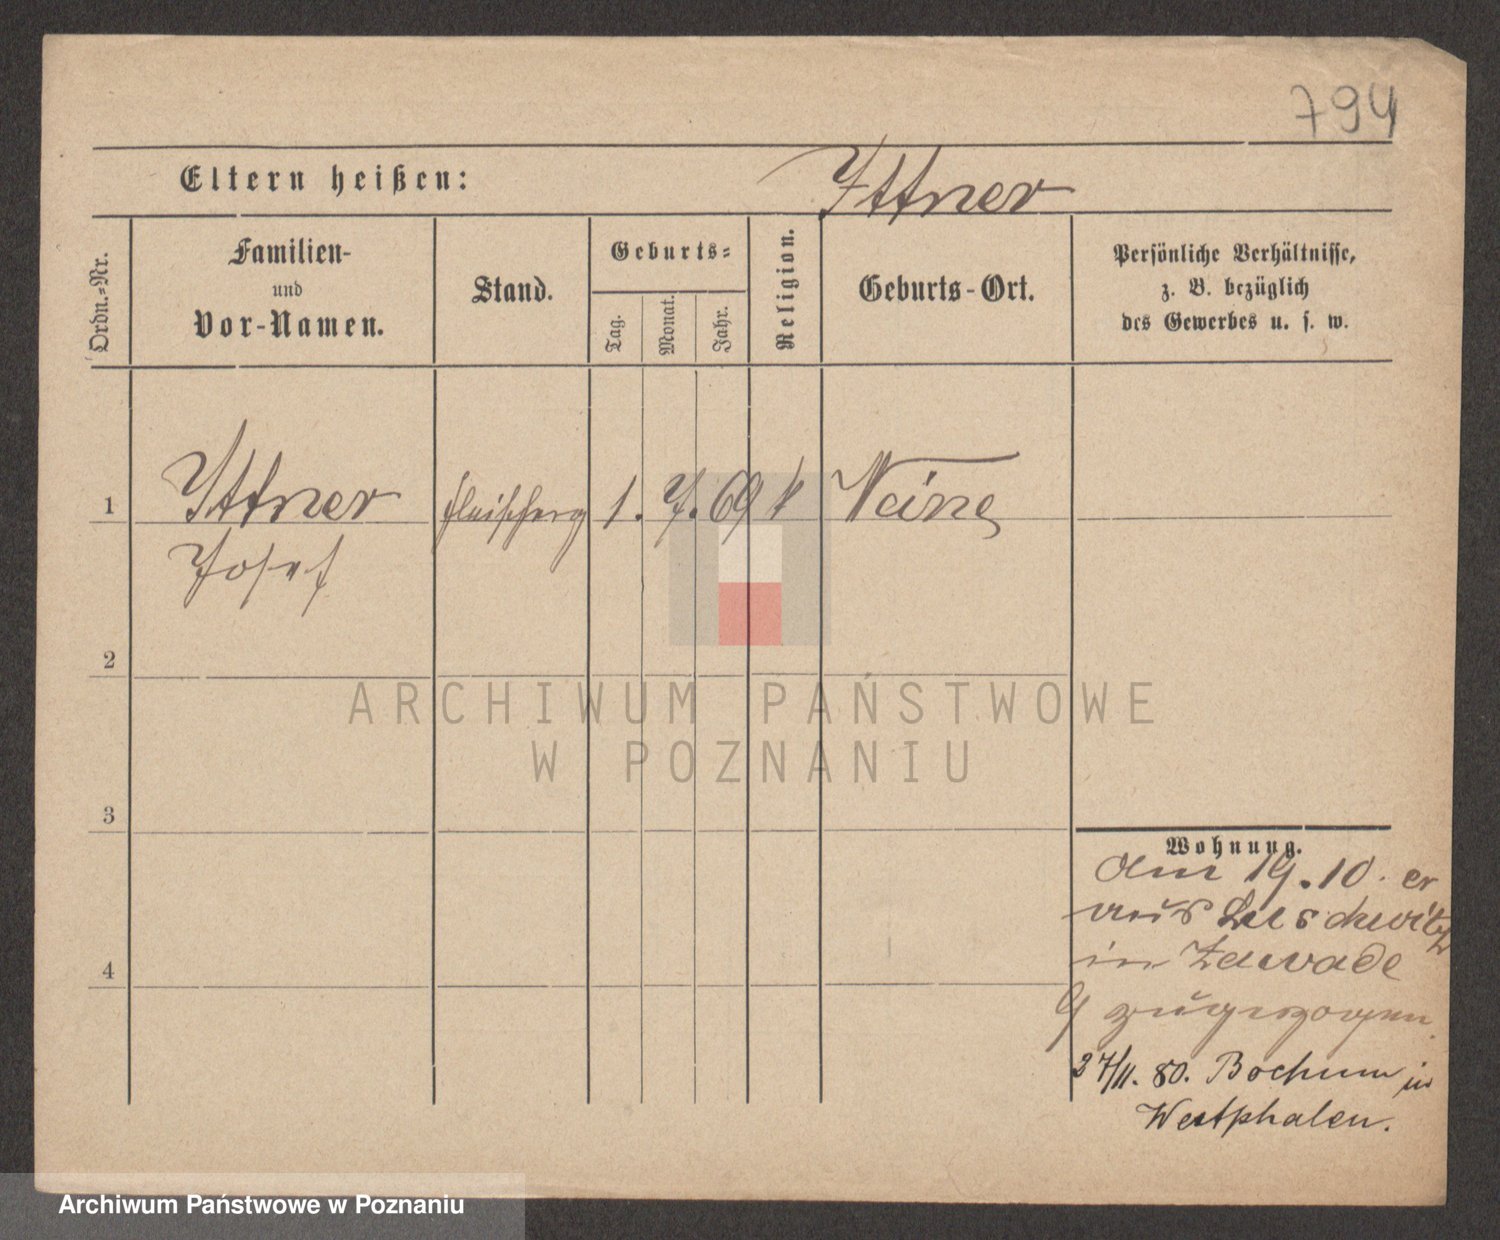 794
Eltern heißen: Ittner
Ordn.=Nr.
Familien-
und
Vor-Namen.
Stand.
Geburts=
Tag.
Monat.
Jahr.
Religion.
Geburts-Ort.
Persönliche Verhältnisse,
z. B. bezüglich
des Gewerbes u. s. w.
1 Ittner 1. 7. 69 k
Josef
2
3
4
Wohnung.
am 19.10. er
aus Luschwitz
in Zawade
zugezogen
27/11. Bochum in
Westphalen.
ARCHIWUM PAŃSTWOWE
W POZNANIU
Archiwum Państwowe w Poznaniu